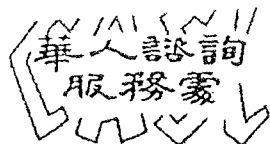 華人諮詢
服務處